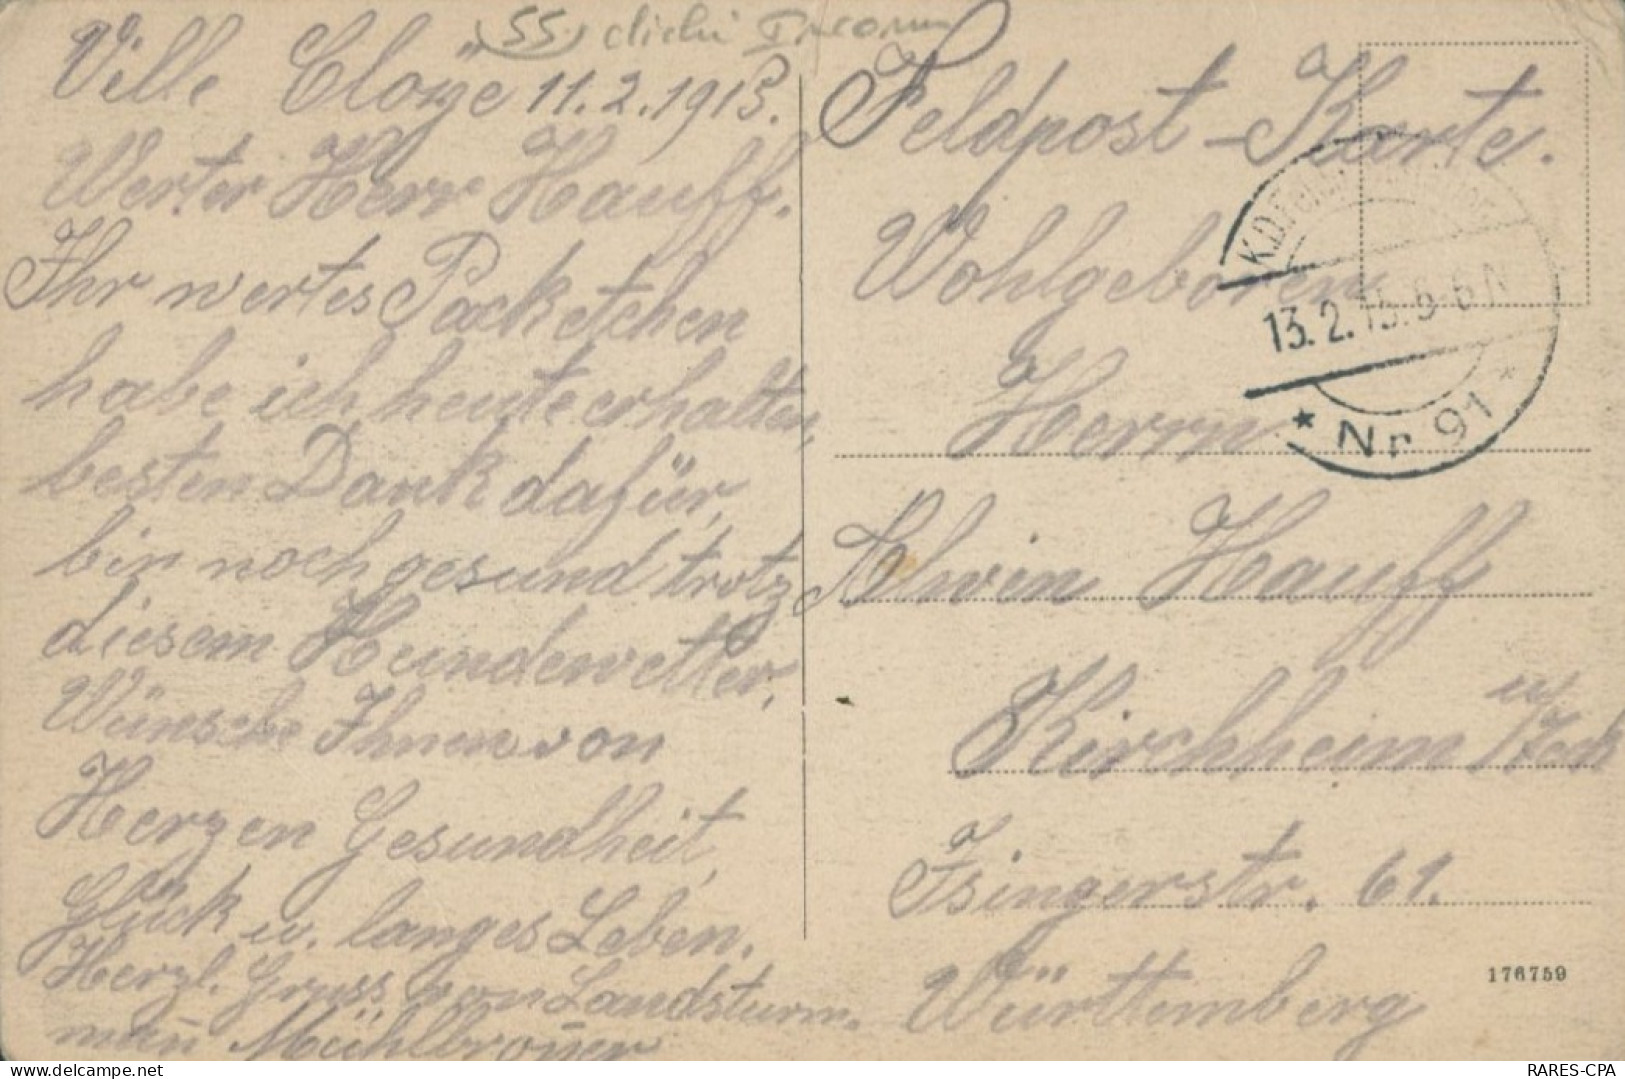 55 cliché
Ville Cloye 11.2.1915.
Werter Herr Hauff.
Ihr wertes Packetchen
habe ich heute erhalten,
besten Dank dafür,
bin noch gesund trotz
diesem Hundewetter,
Wünsche Ihnen von
Herzen Gesundheit,
Glück u. langes Leben.
Herzl. Gruss von Landsturm-
man̄
Feldpost-Karte.
Wohlgeboren
Herrn
Alwin Hauff
Kirchheim u/Teck
Isingerstr. 61.
Württemberg
K.D. Feld
13.2.15. 5-6 N
* Nr. 91 *
176759
RARES-CPA